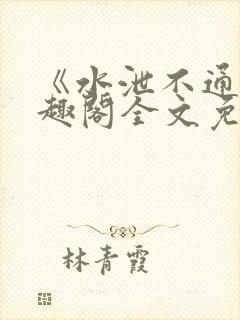 《水泄不通
趣阁全文免
林青霞